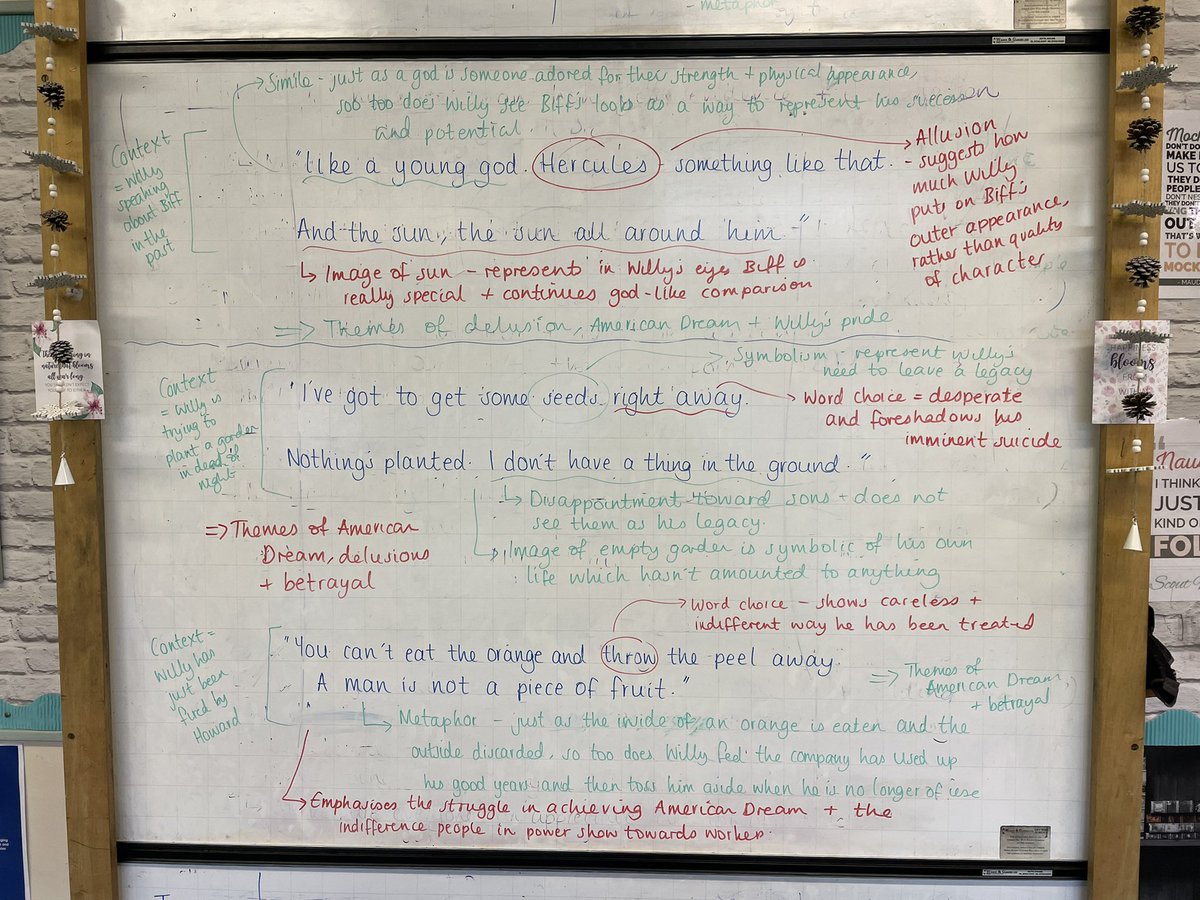 - metaphor
Simile - just as a god is someone adored for their strength + physical appearance,
soo too does Willy see Biff's looks as a way to represent his success
and potential.
Context
= Willy
speaking
about Biff
in the
past
"like a young god. Hercules - something like that.
And the sun, the sun all around him."
Allusion
- suggests how
much Willy
puts on Biff's
outer appearance,
rather than quality
of character
↳ Image of sun - represents in Willy's eyes Biff is
really special + continues god-like comparison
⇒ Themes of delusion, American Dream + Willy's pride
Context
= Willy is
trying to
plant a garden
in dead of
night
Symbolism - represent Willy's
need to leave a legacy
"I've got to get some seeds right away.
Word choice = desperate
and foreshadows his
imminent suicide
Nothing's planted. I don't have a thing in the ground."
↳ Disappointment toward sons - does not
see them as his legacy.
Image of empty garden is symbolic of his own
life which hasn't amounted to anything
⇒ Themes of American
Dream, delusions
+ betrayal
Word choice - shows careless +
indifferent way he has been treated
Context =
Willy has
just been
fired by
Howard
"You can't eat the orange and throw the peel away.
A man is not a piece of fruit."
⇒ Themes of
American Dream,
+ betrayal
↳ Metaphor - just as the inside of an orange is eaten and the
outside discarded, so too does Willy feel the company has used up
his good years and then toss him aside when he is no longer of use
Emphasises the struggle in achieving American Dream + the
indifference people in power show towards worker.
blooms
I THINK
JUST
KIND O
FOL
Scout